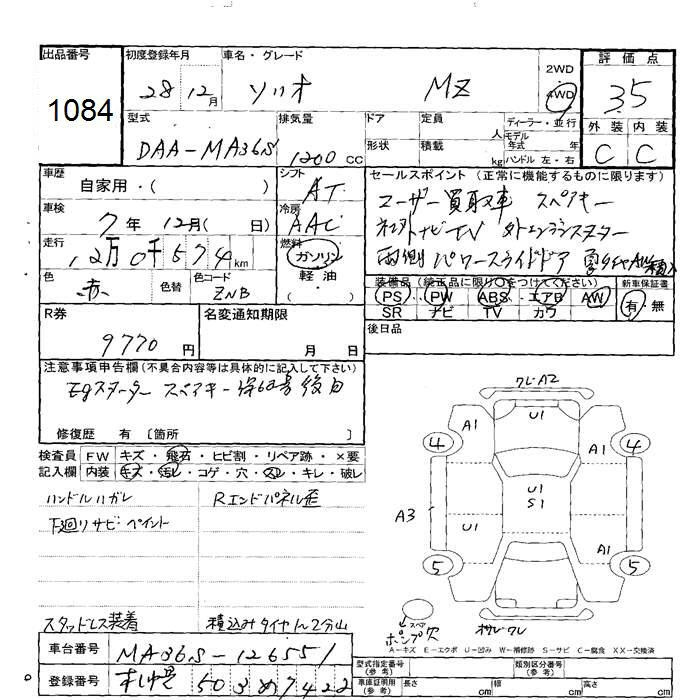 出品番号
1084
初度登録年月
28 12月
車名・グレード
ソリオ MZ
2WD
4WD
評価点
3.5
型式
DAA-MA36S
排気量
1200 CC
ドア
形状
定員 人
積載 kg
ディーラー・並行
モデル年式 年式
ハンドル 左・右
外装 内装
C C
車歴
自家用・( )
シフト
AT
車検
7年 12月( 日)
冷房
AAC
走行
12万0千574km
燃料
ガソリン
軽油
色
赤
色替
色コード
ZNB
セールスポイント(正常に機能するものに限ります)
ユーザー買取車 スペアキー
ナビTV
両側パワースライドドア
装備品(純正品に限り○をつけてください)
PS PW ABS エアB AW
SR ナビ TV カワ
新車保証書
有 無
R券
9770円
名変通知期限
月 日
後日品
注意事項申告欄(不具合内容等は具体的に記入して下さい)
Egスターター スペアキー 後日
修復歴 有 〔箇所 〕
検査員 FW キズ・飛石・ヒビ割・リペア跡・×要
記入欄 内装 キズ・汚レ・コゲ・穴・スレ・キレ・破レ
ハンドルハガレ
Rエンドパネル歪
下廻りサビ・ペイント
スタッドレス装着
積込みタイヤ
ワレA2
U1
A1
A1
4
4
U1
S1
A3
U1
A1
5
5
スペア
ポンプ穴
A-キズ E-エクボ U-凹み W-補修跡 S-サビ C-腐食 XX-交換済
車台番号
MA36S-126551
登録番号
札幌 503 め 7422
型式指定番号(参考)
類別区分番号(参考)
車庫証明用(参考)
長さ cm
幅 cm
高さ cm